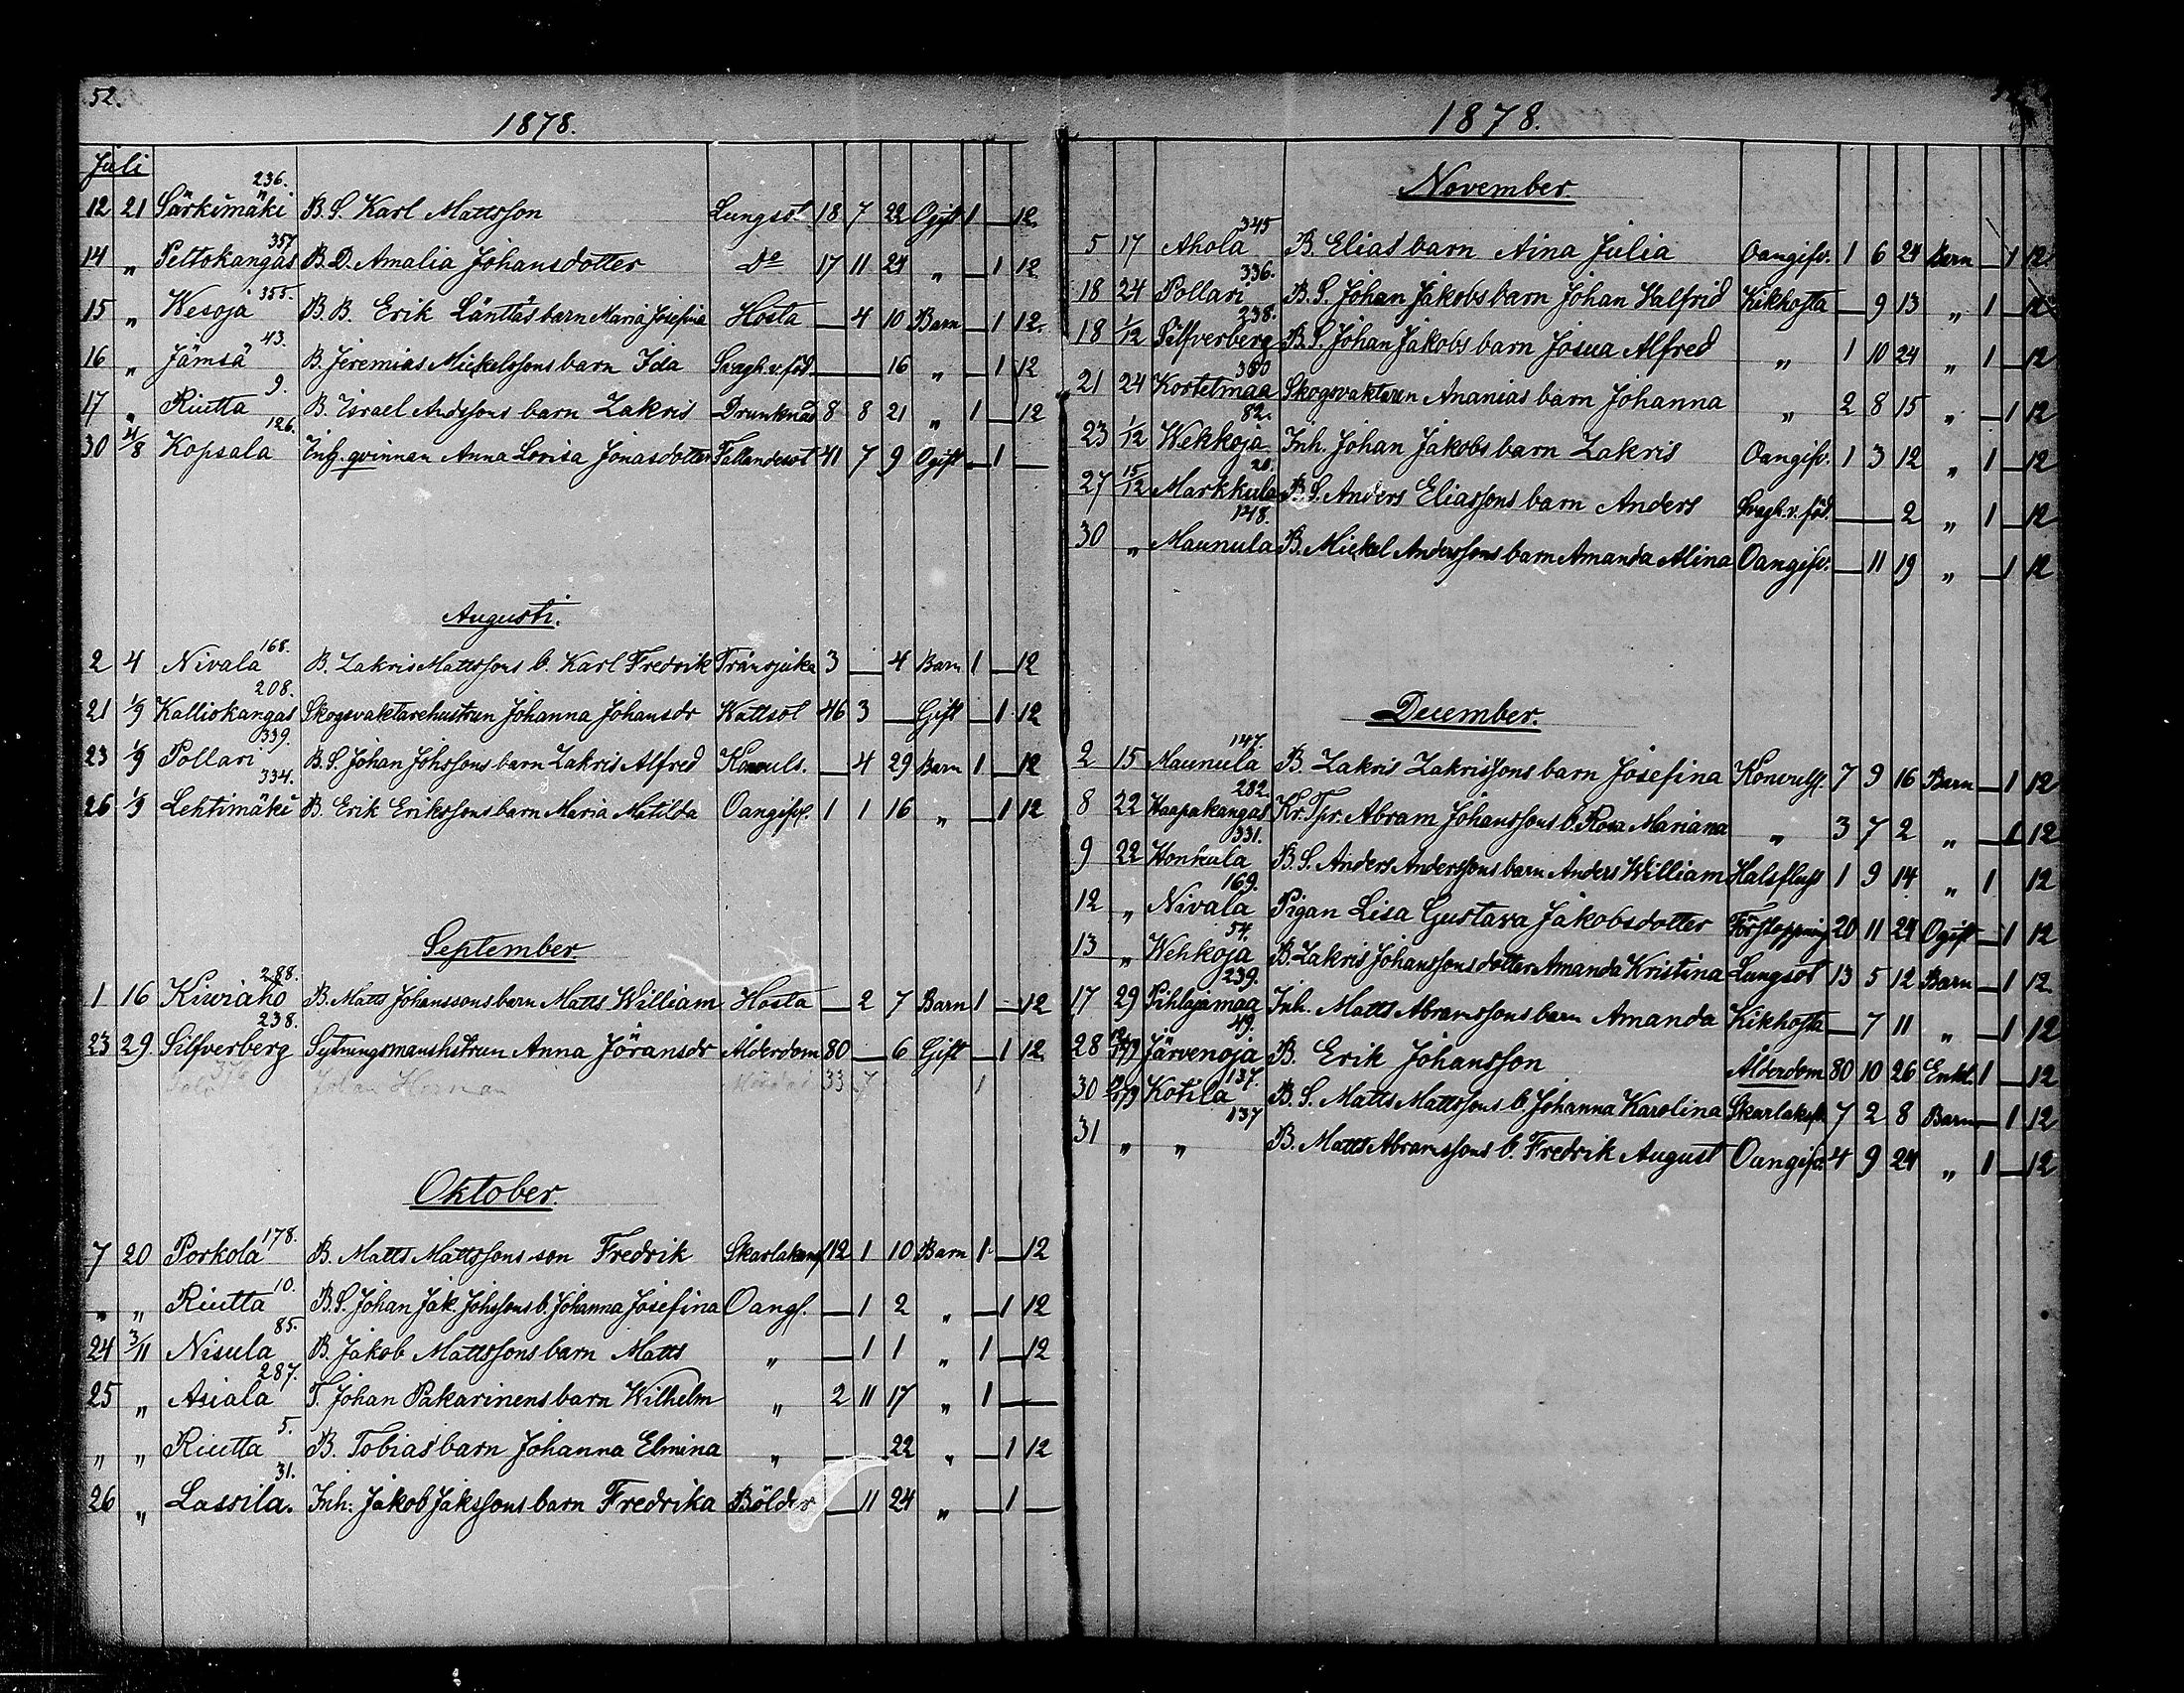 52.
1878.
Juli
236.
12 21 Särkimäki B. S. Karl Mattsson Lungsot 18 7 22 Ogift 1 — 12
357
14 " Peltokangas B. D. Amalia Johansdotter Do 17 11 24 " — 1 12
355.
15 " Wesoja B. B. Erik Länttäs barn Maria Josefina Hosta — 4 10 Barn — 1 12.
43.
16 " Jämsä B. Jeremias Mickelssons barn Ida Svagh. v. föd. — — 16 " — 1 12
9.
17 " Riutta B. Israel Anderssons barn Zakris Drunknad 8 8 21 " 1 — 12
126.
30 11/8 Kopsala Inh. qvinnan Anna Lovisa Jonasdotter Fallandesot 41 7 9 Ogift — 1 —
Augusti.
168.
2 4 Nivala B. Zakris Mattssons b. Karl Fredrik Trånsjuka 3 — 4 Barn 1 — 12
208.
21 1/9 Kalliokangas Skogsvaktarehustrun Johanna Johansdr Wattsot 46 3 — Gift — 1 12
339.
23 1/9 Pollari B. S. Johan Johssons barn Zakris Alfred Konvuls. — 4 29 Barn 1 — 12
334.
26 1/9 Lehtimäki B. Erik Erikssons barn Maria Matilda Oangifv. 1 1 16 " — 1 12
September
288.
1 16 Kiviaho B. Matts Johanssons barn Matts William Hosta — 2 7 Barn 1 — 12
238.
23 29 Silfverberg Sytningsmanshstrun Anna Jöransdr Ålderdom 80 — 6 Gift — 1 12.
Johan 33 7 1
Oktober.
178.
7 20 Porkola B. Matts Mattssons son Fredrik Skarlakansf. 12 1 10 Barn 1 — 12
10.
" " Riutta B. S. Johan Jak. Johssons b. Johanna Josefina Oangf. — 1 2 " — 1 12
85.
24 3/11 Nisula B. Jakob Mattssons barn Matts " — 1 1 " 1 — 12
287.
25 " Asiala T. Johan Pakarinens barn Wilhelm " 2 11 17 " 1 — —
5.
" " Riutta B. Tobias barn Johanna Elmina " — — 22 " — 1 12
31.
26 " Lassila. Inh. Jakob Jakssons barn Fredrika Bölder — 11 24 " — 1 —
1878.
November.
345
5 17 Ahola B. Elias barn Aina Julia Oangifv. 1 6 24 Barn — 1 12.
336.
18 24 Pollari B. S. Johan Jakobs barn Johan Walfrid Kikhosta — 9 13 " 1 — 12
238.
18 1/12 Silfverberg B. S. Johan Jakobs barn Josua Alfred " 1 10 24 " 1 — 12
380
21 24 Kortetmaa Skogsvaktaren Ananias barn Johanna " 2 8 15 " — 1 12
82.
23 1/12 Wekkoja Inh. Johan Jakobs barn Zakris Oangifv. 1 3 12 " 1 — 12
20.
27 15/12 Markkula B. S. Anders Eliassons barn Anders Svagh. v. föd. — — 2 " 1 — 12
148.
30 " Maunula B. Mickel Anderssons barn Amanda Alina Oangifv. — 11 19 " — 1 12
December.
147.
2 15 Maunula B. Zakris Zakrissons barn Josefina Konvuls. 7 9 16 Barn — 1 12
282
8 22 Haapakangas Kr. Tpr. Abram Johanssons b. Rosa Mariana " 3 7 2 " — 1 12
331.
9 22 Honkala B. S. Anders Anderssons barn Anders William Halsfluss 1 9 14 " 1 12
169.
12 " Nivala Pigan Lisa Gustava Jakobsdotter Förstoppning 20 11 24 Ogift — 1 12
54.
13 " Wehkoja B. Zakris Johanssons dotter Amanda Kristina Lungsot 13 5 12 Barn — 1 12.
239.
17 29 Pihlajamaa Inh. Matts Abramssons barn Amanda Kikhosta — 7 11 " — 1 12
49.
28 Järvenoja B. Erik Johansson Ålderdom 80 10 26 Enkl. 1 — 12
137.
30 Kotila B. S. Matts Mattssons b. Johanna Karolina Skarlaksf. 7 2 8 Barn — 1 12
137
31 " " B. Matts Abramssons b. Fredrik August Oangifv. 4 9 24 " 1 — 12